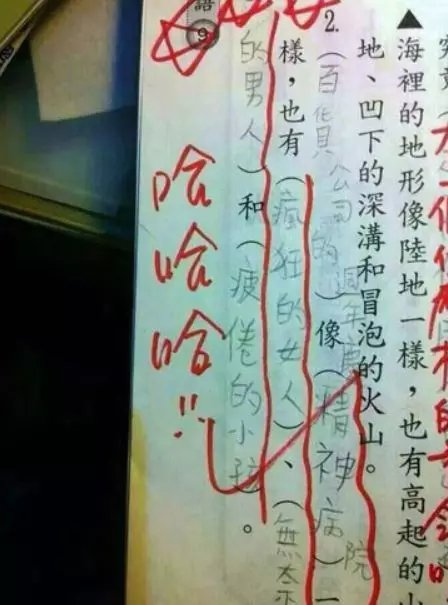 ▲海裡的地形像陸地一樣，也有高起的山
地、凹下的深溝和冒泡的火山。
2.（百貨公司的週年慶）像（精神病院）一
樣，也有（瘋狂的女人）、（無奈
的男人）和（疲倦的小孩）。
語9
哈哈哈!!